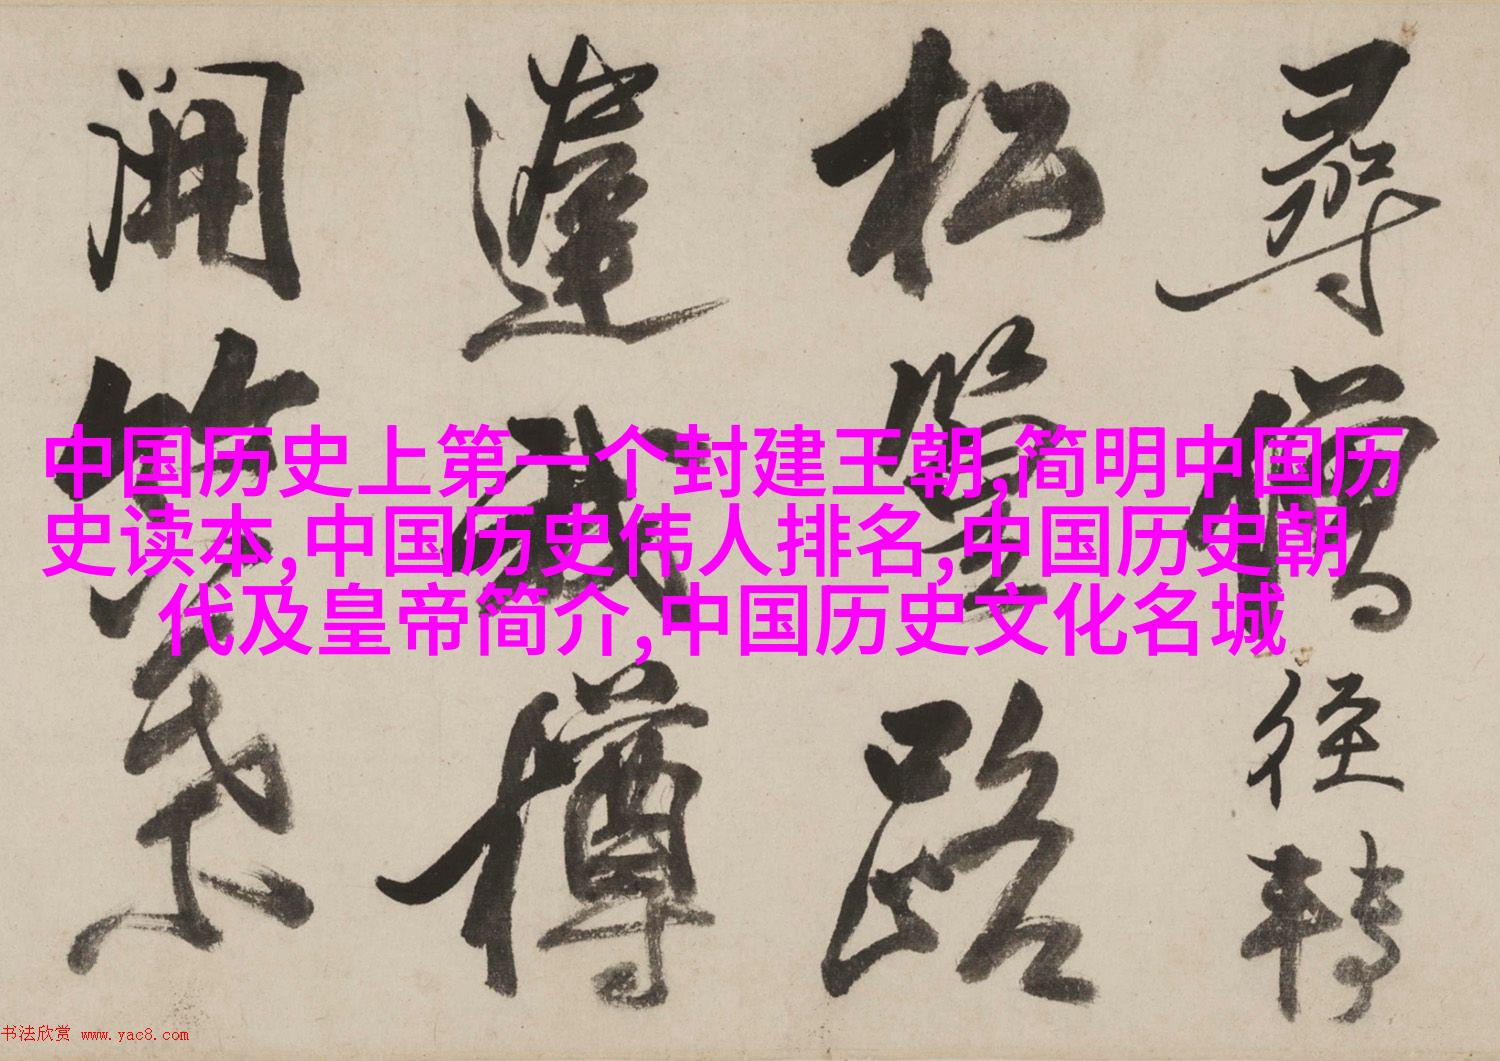 尋僧徑轉
松路
樽
開
中国历史上第一个封建王朝,简明中国历
史读本,中国历史伟人排名,中国历史朝
代及皇帝简介,中国历史文化名城
书法欣赏 www.yac8.com